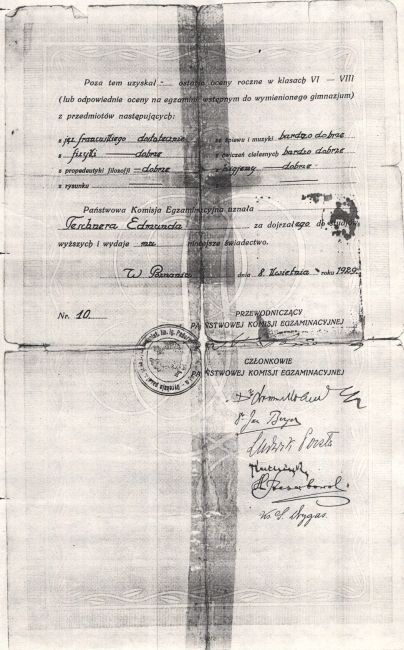 Poza tem uzyskał — ostatnie oceny roczne w klasach VI — VIII
(lub odpowiednie oceny na egzaminie wstępnym do wymienionego gimnazjum)
z przedmiotów następujących:
z jęz. francuskiego dostatecznie ze śpiewu i muzyki bardzo dobrze
z fizyki — dobrze z ćwiczeń cielesnych bardzo dobrze
z propedeutyki filozofii — dobrze z higjeny — dobrze
z rysunku
Państwowa Komisja Egzaminacyjna uznała
Teschnera Edmunda za dojrzałego do studjów
wyższych i wydaje mu niniejsze świadectwo.
W Poznaniu dnia 8. kwietnia roku 1929
Nr. 10
PRZEWODNICZĄCY
PAŃSTWOWEJ KOMISJI EGZAMINACYJNEJ
CZŁONKOWIE
PAŃSTWOWEJ KOMISJI EGZAMINACYJNEJ
Ludwik